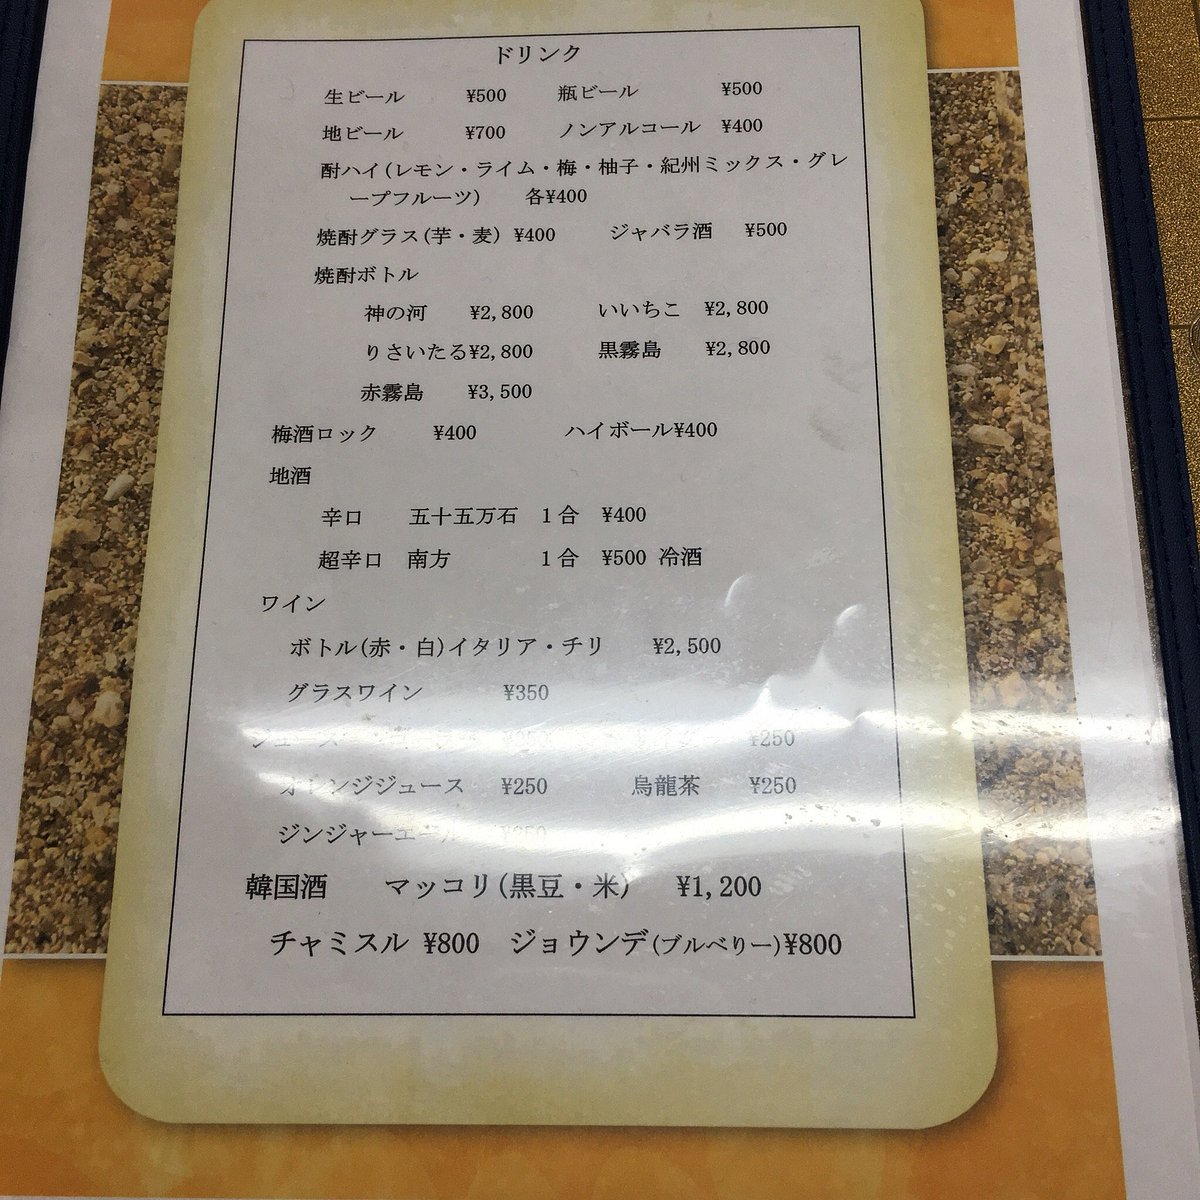 ドリンク
生ビール ¥500 瓶ビール ¥500
地ビール ¥700 ノンアルコール ¥400
酎ハイ(レモン・ライム・梅・柚子・紀州ミックス・グレ
ープフルーツ) 各¥400
焼酎グラス(芋・麦) ¥400 ジャバラ酒 ¥500
焼酎ボトル
神の河 ¥2,800 いいちこ ¥2,800
りさいたる¥2,800 黒霧島 ¥2,800
赤霧島 ¥3,500
梅酒ロック ¥400 ハイボール¥400
地酒
辛口 五十五万石 1合 ¥400
超辛口 南方 1合 ¥500 冷酒
ワイン
ボトル(赤・白)イタリア・チリ ¥2,500
グラスワイン ¥350
ジュース ¥250
オレンジジュース ¥250 烏龍茶 ¥250
ジンジャーエール ¥250
韓国酒 マッコリ(黒豆・米) ¥1,200
チャミスル ¥800 ジョウンデ(ブルベリー)¥800